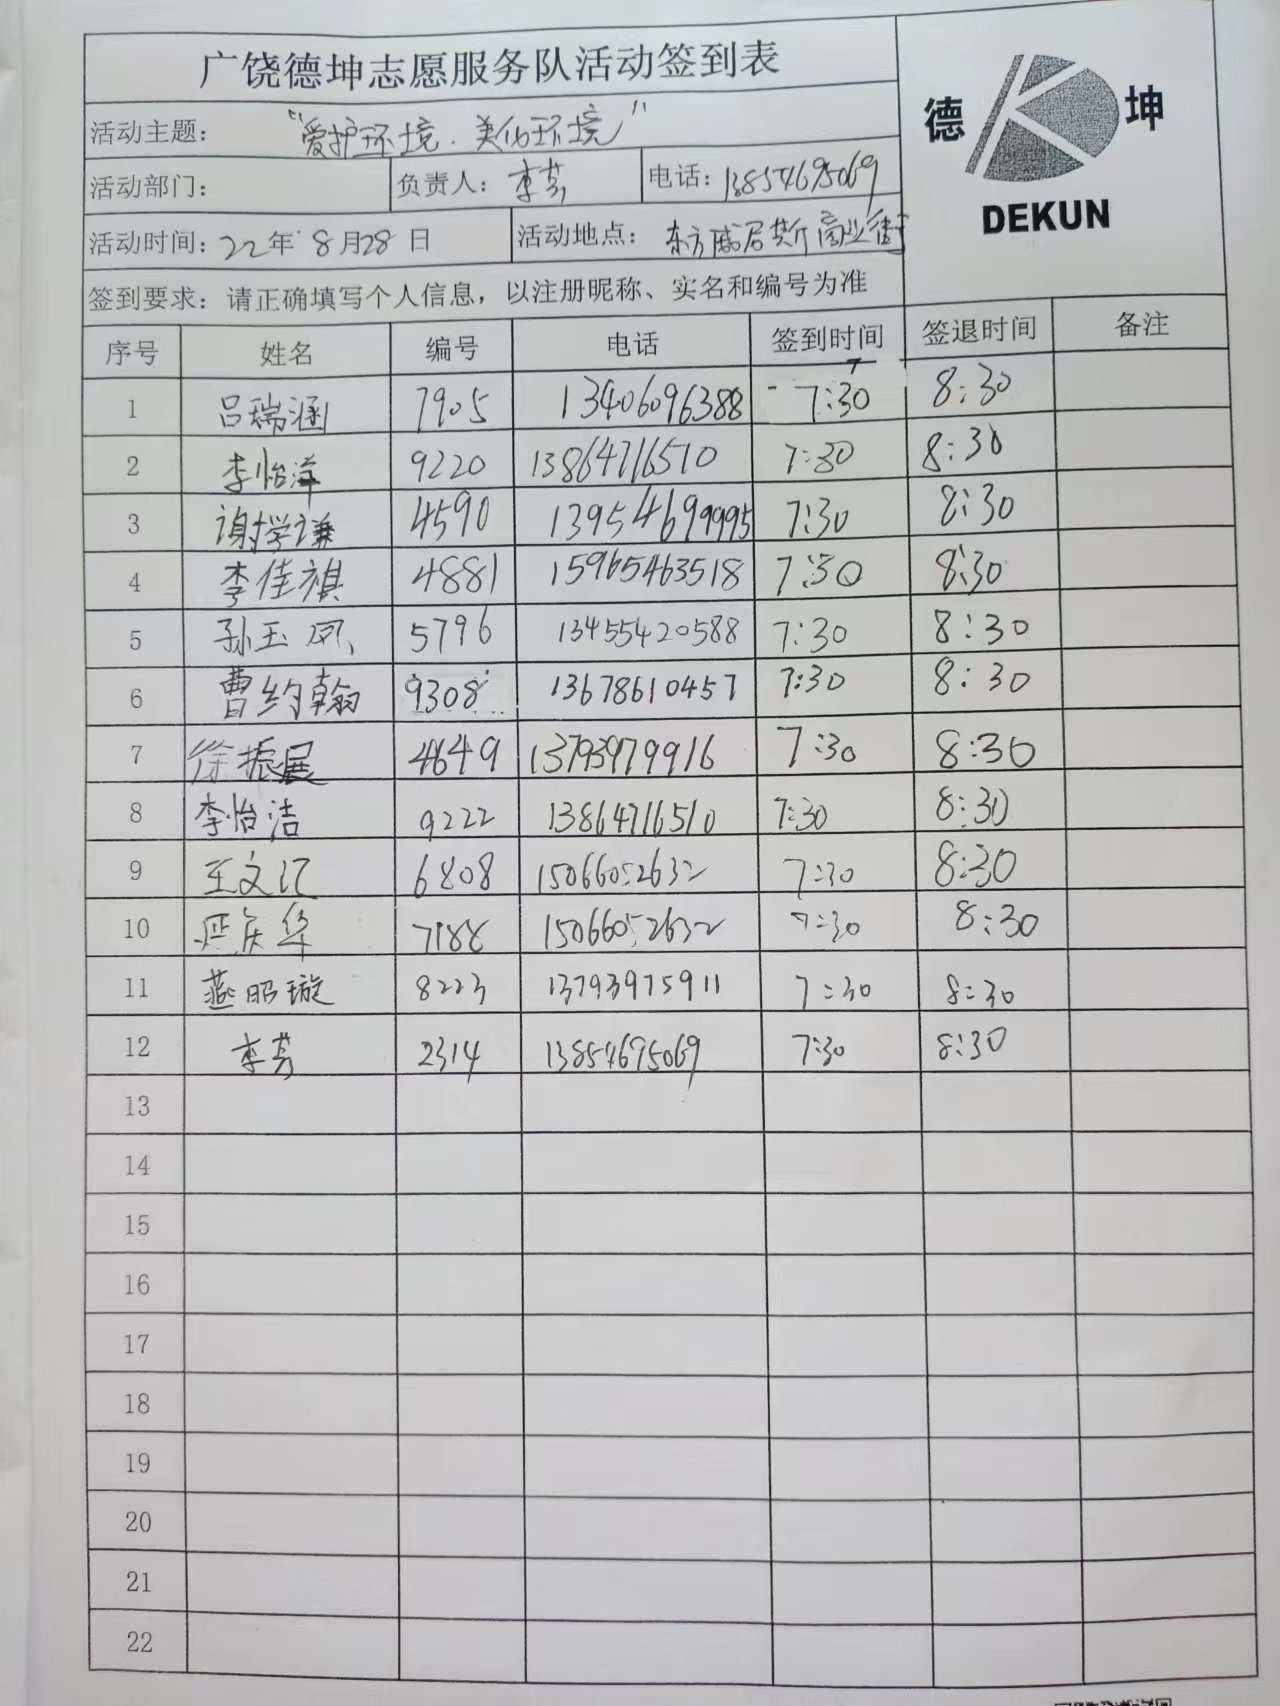 广饶德坤志愿服务队活动签到表
德 坤
DEKUN
活动主题： “爱护环境．美化环境”
活动部门： 负责人：李芳 电话：13854695069
活动时间：22年8月28日 活动地点：东方威尼斯商业街
签到要求：请正确填写个人信息，以注册昵称、实名和编号为准
序号 姓名 编号 电话 签到时间 签退时间 备注
1 吕瑞涵 7905 13406096388 7:30 8:30
2 李怡洋 9220 13864716510 7:30 8:30
3 谢学谦 4590 13954699995 7:30 8:30
4 李佳祺 4881 15965463518 7:30 8:30
5 孙玉凤 5796 13455420588 7:30 8:30
6 曹约翰 9308 13678610457 7:30 8:30
7 徐振展 4649 13793979916 7:30 8:30
8 李怡洁 9222 13864716510 7:30 8:30
9 王文记 6808 15066052632 7:30 8:30
10 延庆华 7188 15066052632 7:30 8:30
11 燕昭璇 8223 13793975911 7:30 8:30
12 李芳 2314 13854695069 7:30 8:30
13
14
15
16
17
18
19
20
21
22